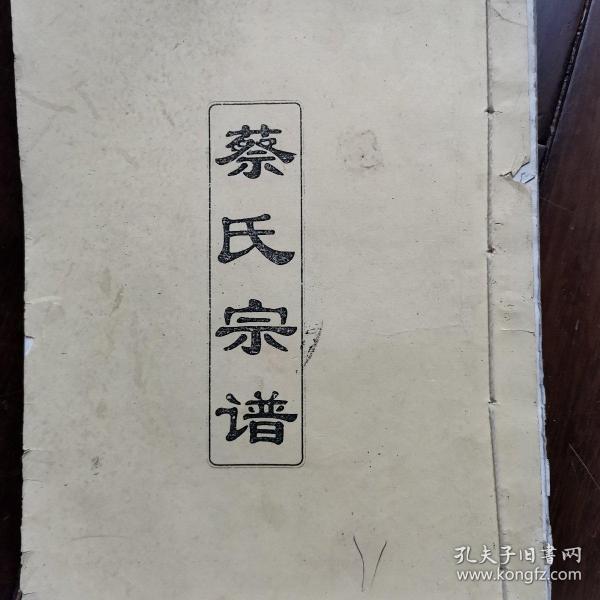 蔡氏宗谱
孔夫子旧書网
www.kongfz.com